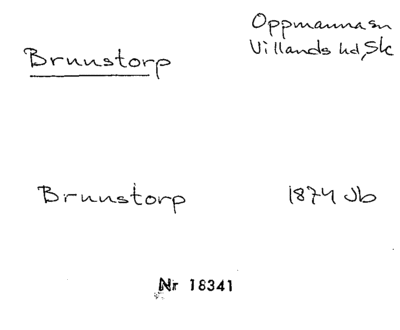 Oppmanna sn
Brunnstorp
Villands hd, Sk
Brunnstorp 1874 Jb
Nr 18341